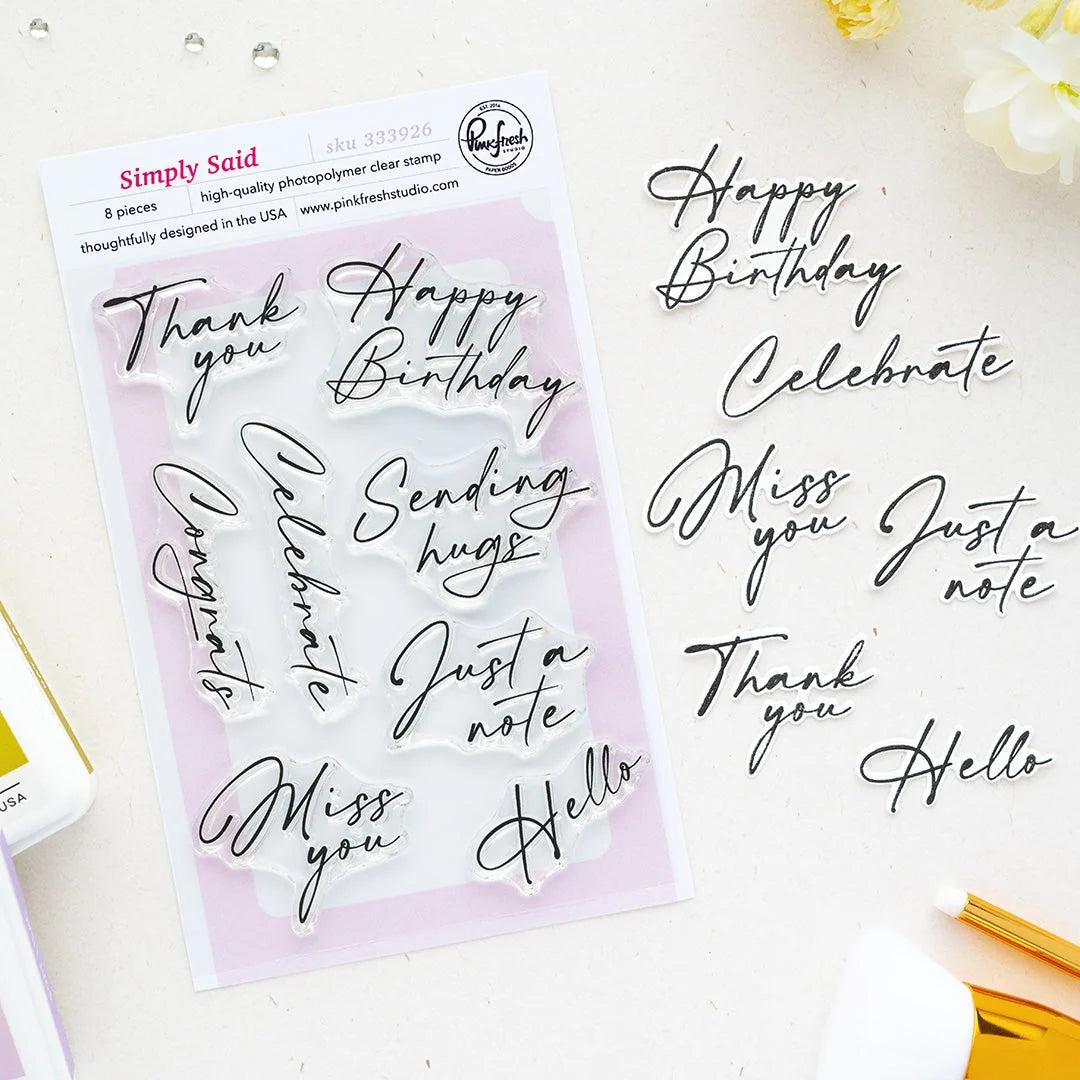 Simply Said
sku 333926
EST. 2014
Pinkfresh
STUDIO
PAPER GOODS
8 pieces
high-quality photopolymer clear stamp
thoughtfully designed in the USA
www.pinkfreshstudio.com
Thank
you
Happy
Birthday
Congrats
Celebrate
Sending
hugs
Just a
note
Miss
you
Hello
Happy
Birthday
Celebrate
Miss
you
Just a
note
Thank
you
Hello
USA